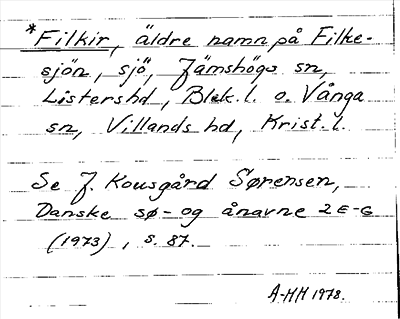 *Filkir, äldre namn på Filke-
sjön, sjö, Jämshögs sn,
Listers hd, Blek. l. o. Vånga
sn, Villands hd, Krist. l.
Se J. Kousgård Sørensen,
Danske sø- og ånavne 2 E-G
(1973), s. 87.
A-HH 1978.